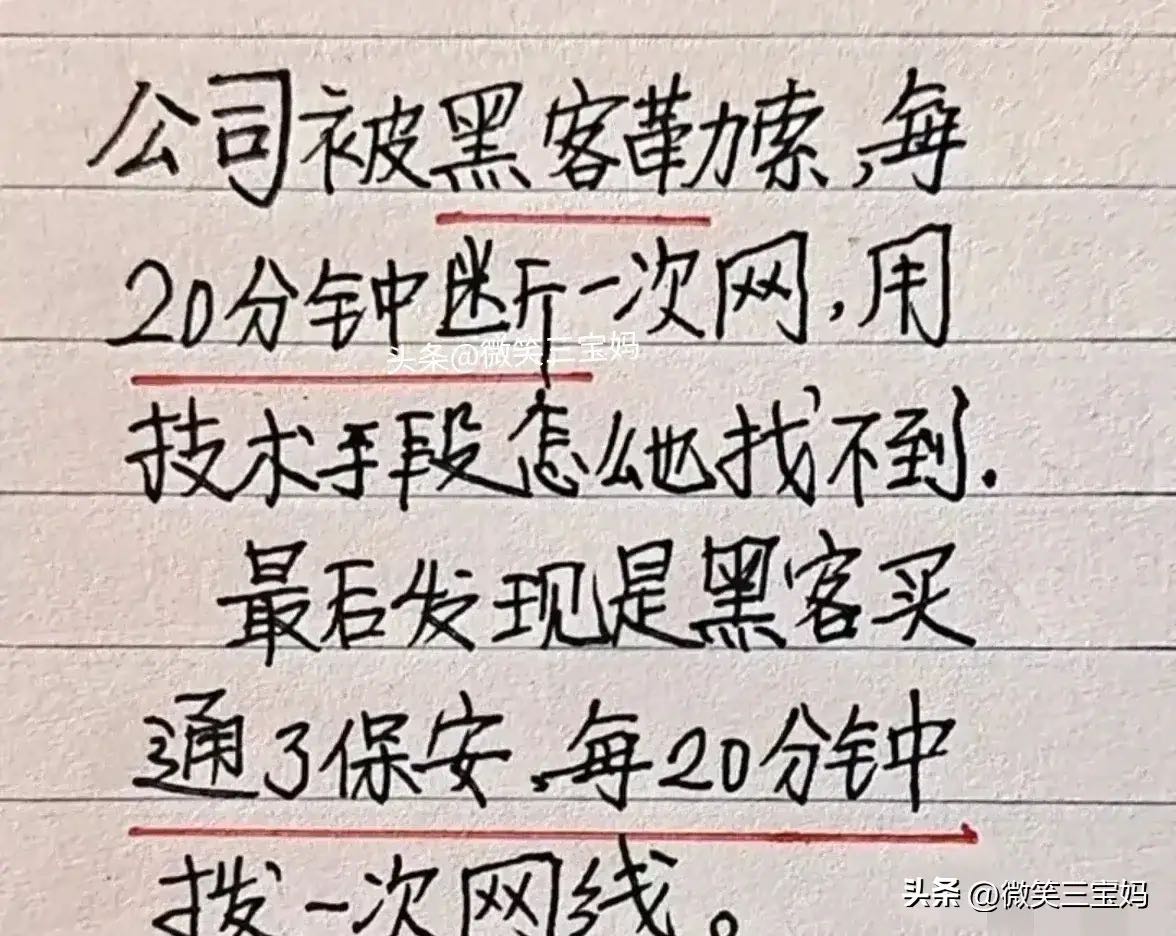 公司被黑客勒索,每
20分钟断一次网,用
技术手段怎么也找不到.
最后发现是黑客买
通了保安,每20分钟
拨一次网线。
头条@微笑三宝妈
头条 @微笑三宝妈